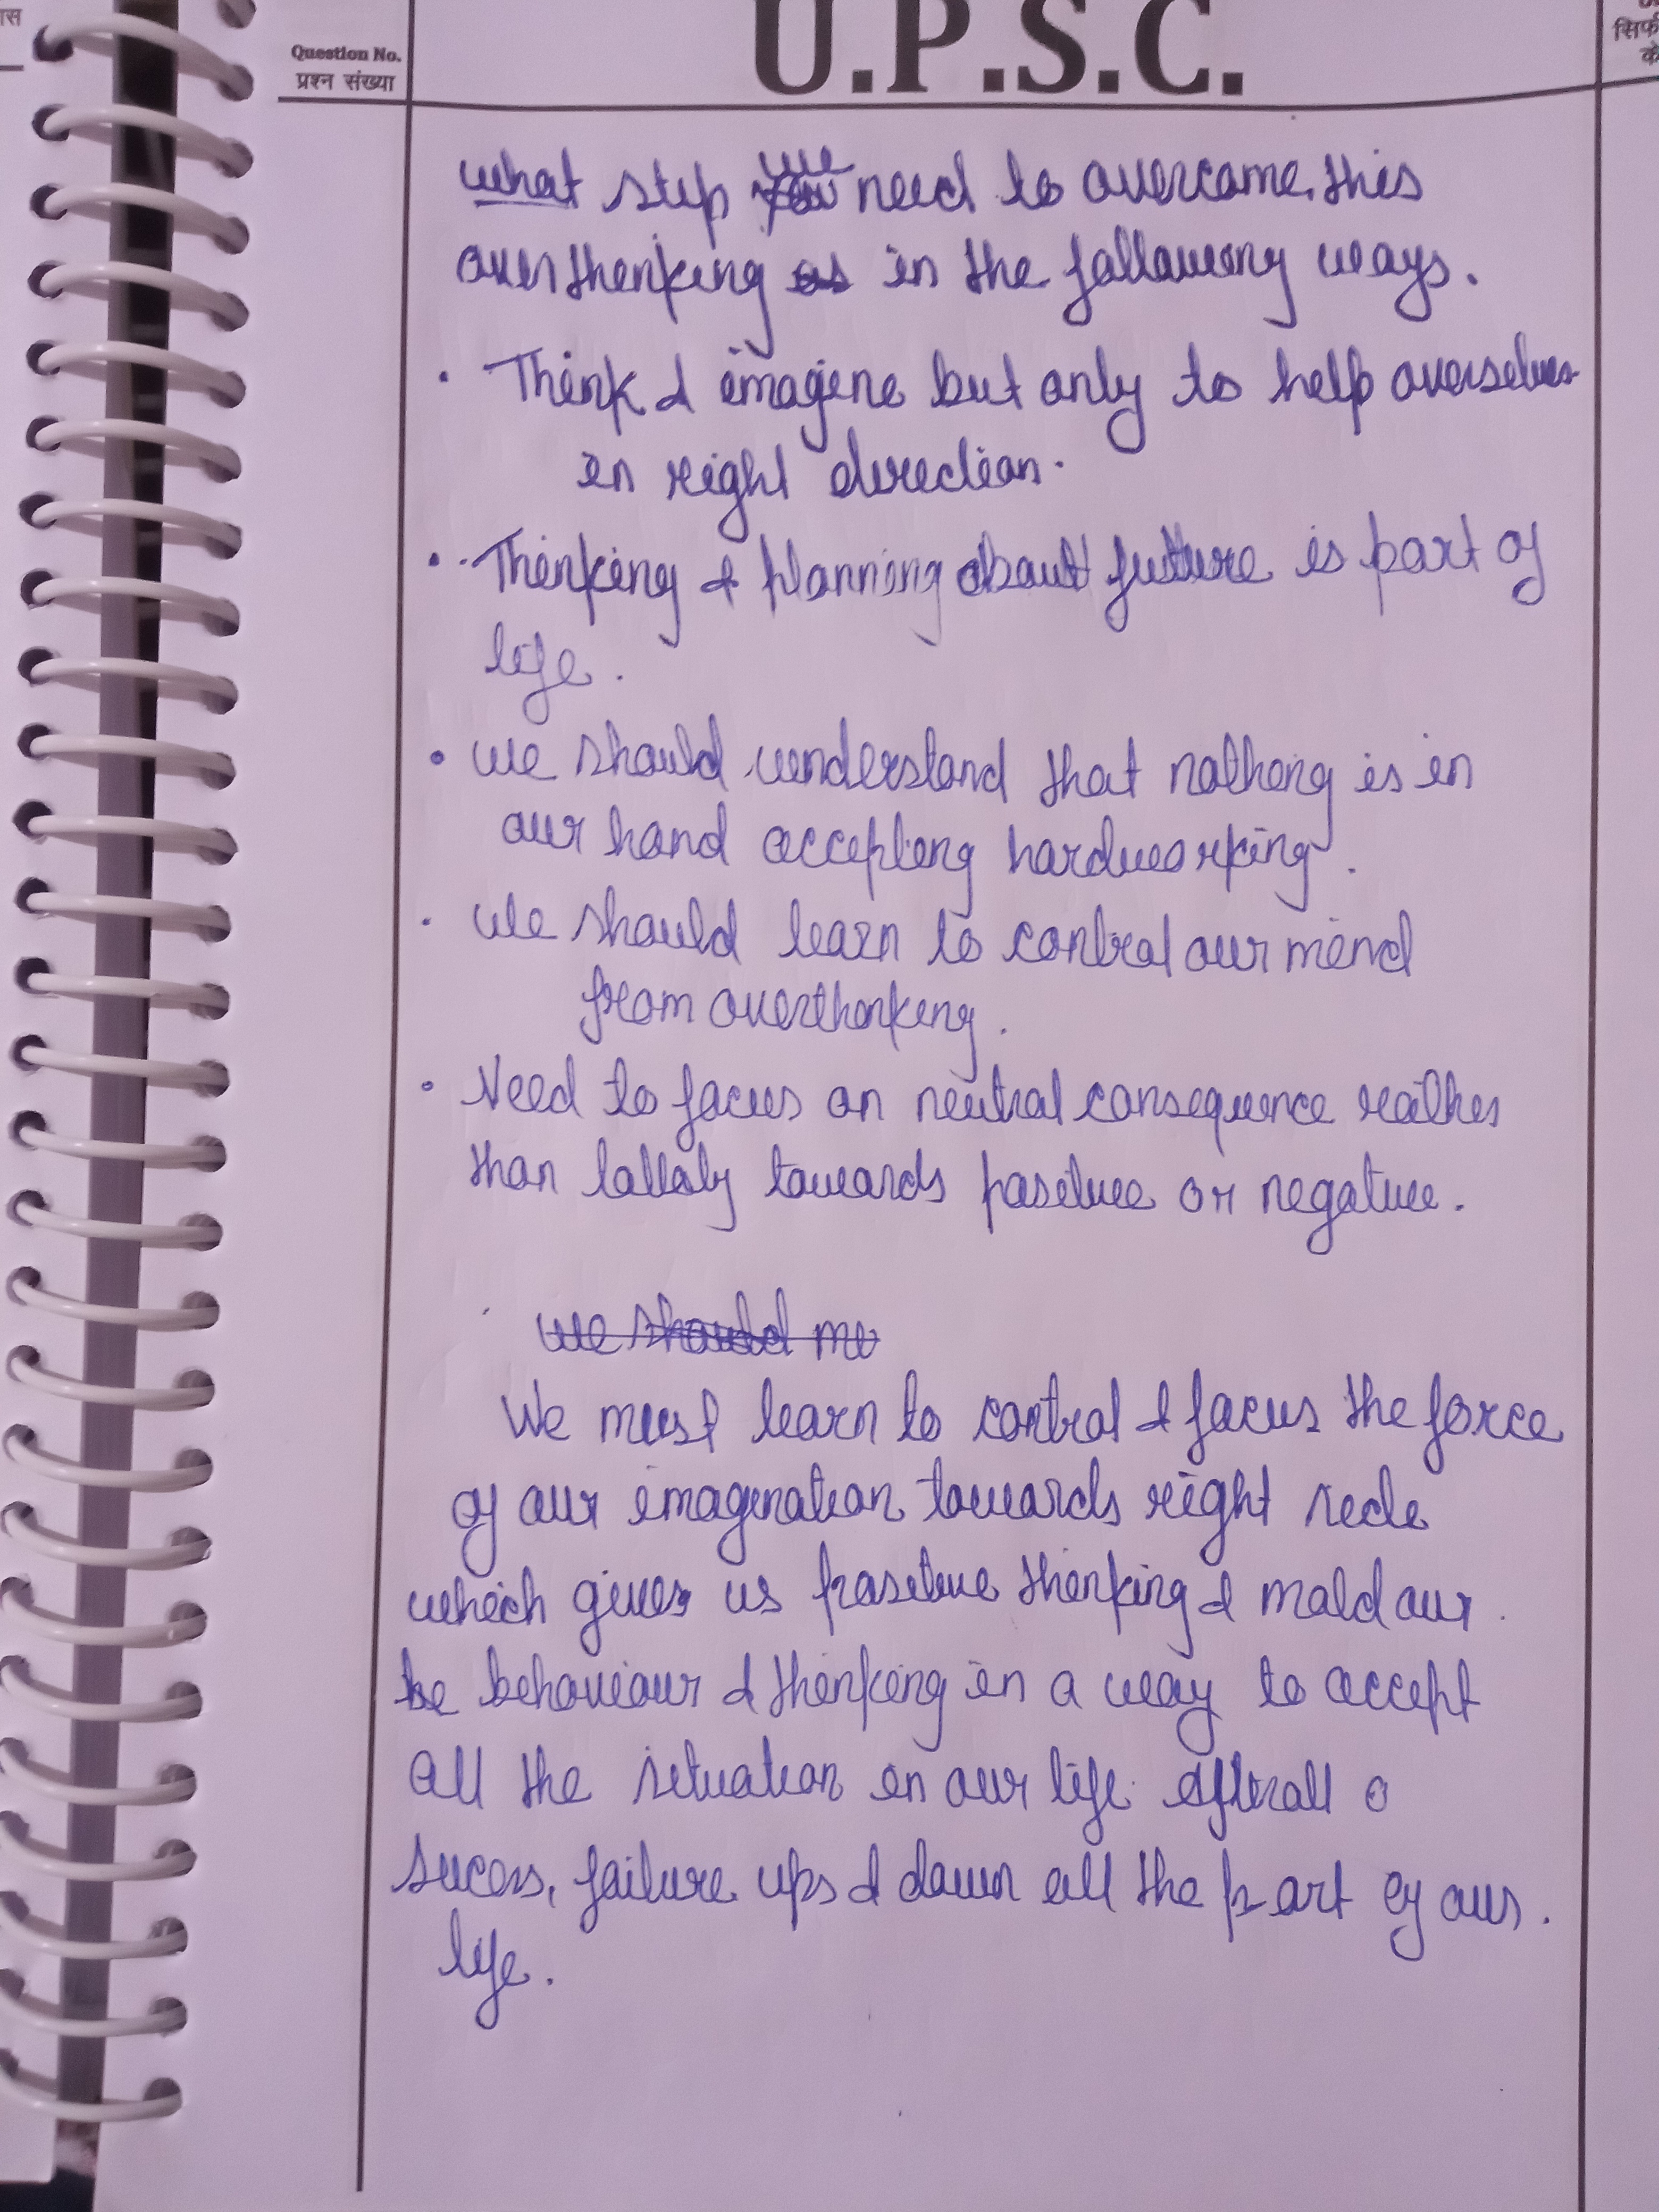 U.P.S.C.
Question No.
प्रश्न संख्या
सिर्फ
के
what step we need to overcome this
overthinking in the following ways.
· Think & imagine but only to help ourselves
in right direction.
· Thinking & planning about future is part of
life.
· we should understand that nothing is in
our hand accepting hardworking.
· we should learn to control our mind
from overthinking.
· Need to focus on neutral consequence rather
than totally towards positive or negative.
we should mo
We must learn to control & focus the force
of our imagination towards right side
which gives us positive thinking & mold our
be behaviour & thinking in a way to accept
all the situation in our life. afterall o
sucess, failure ups & down all the part of our.
life.